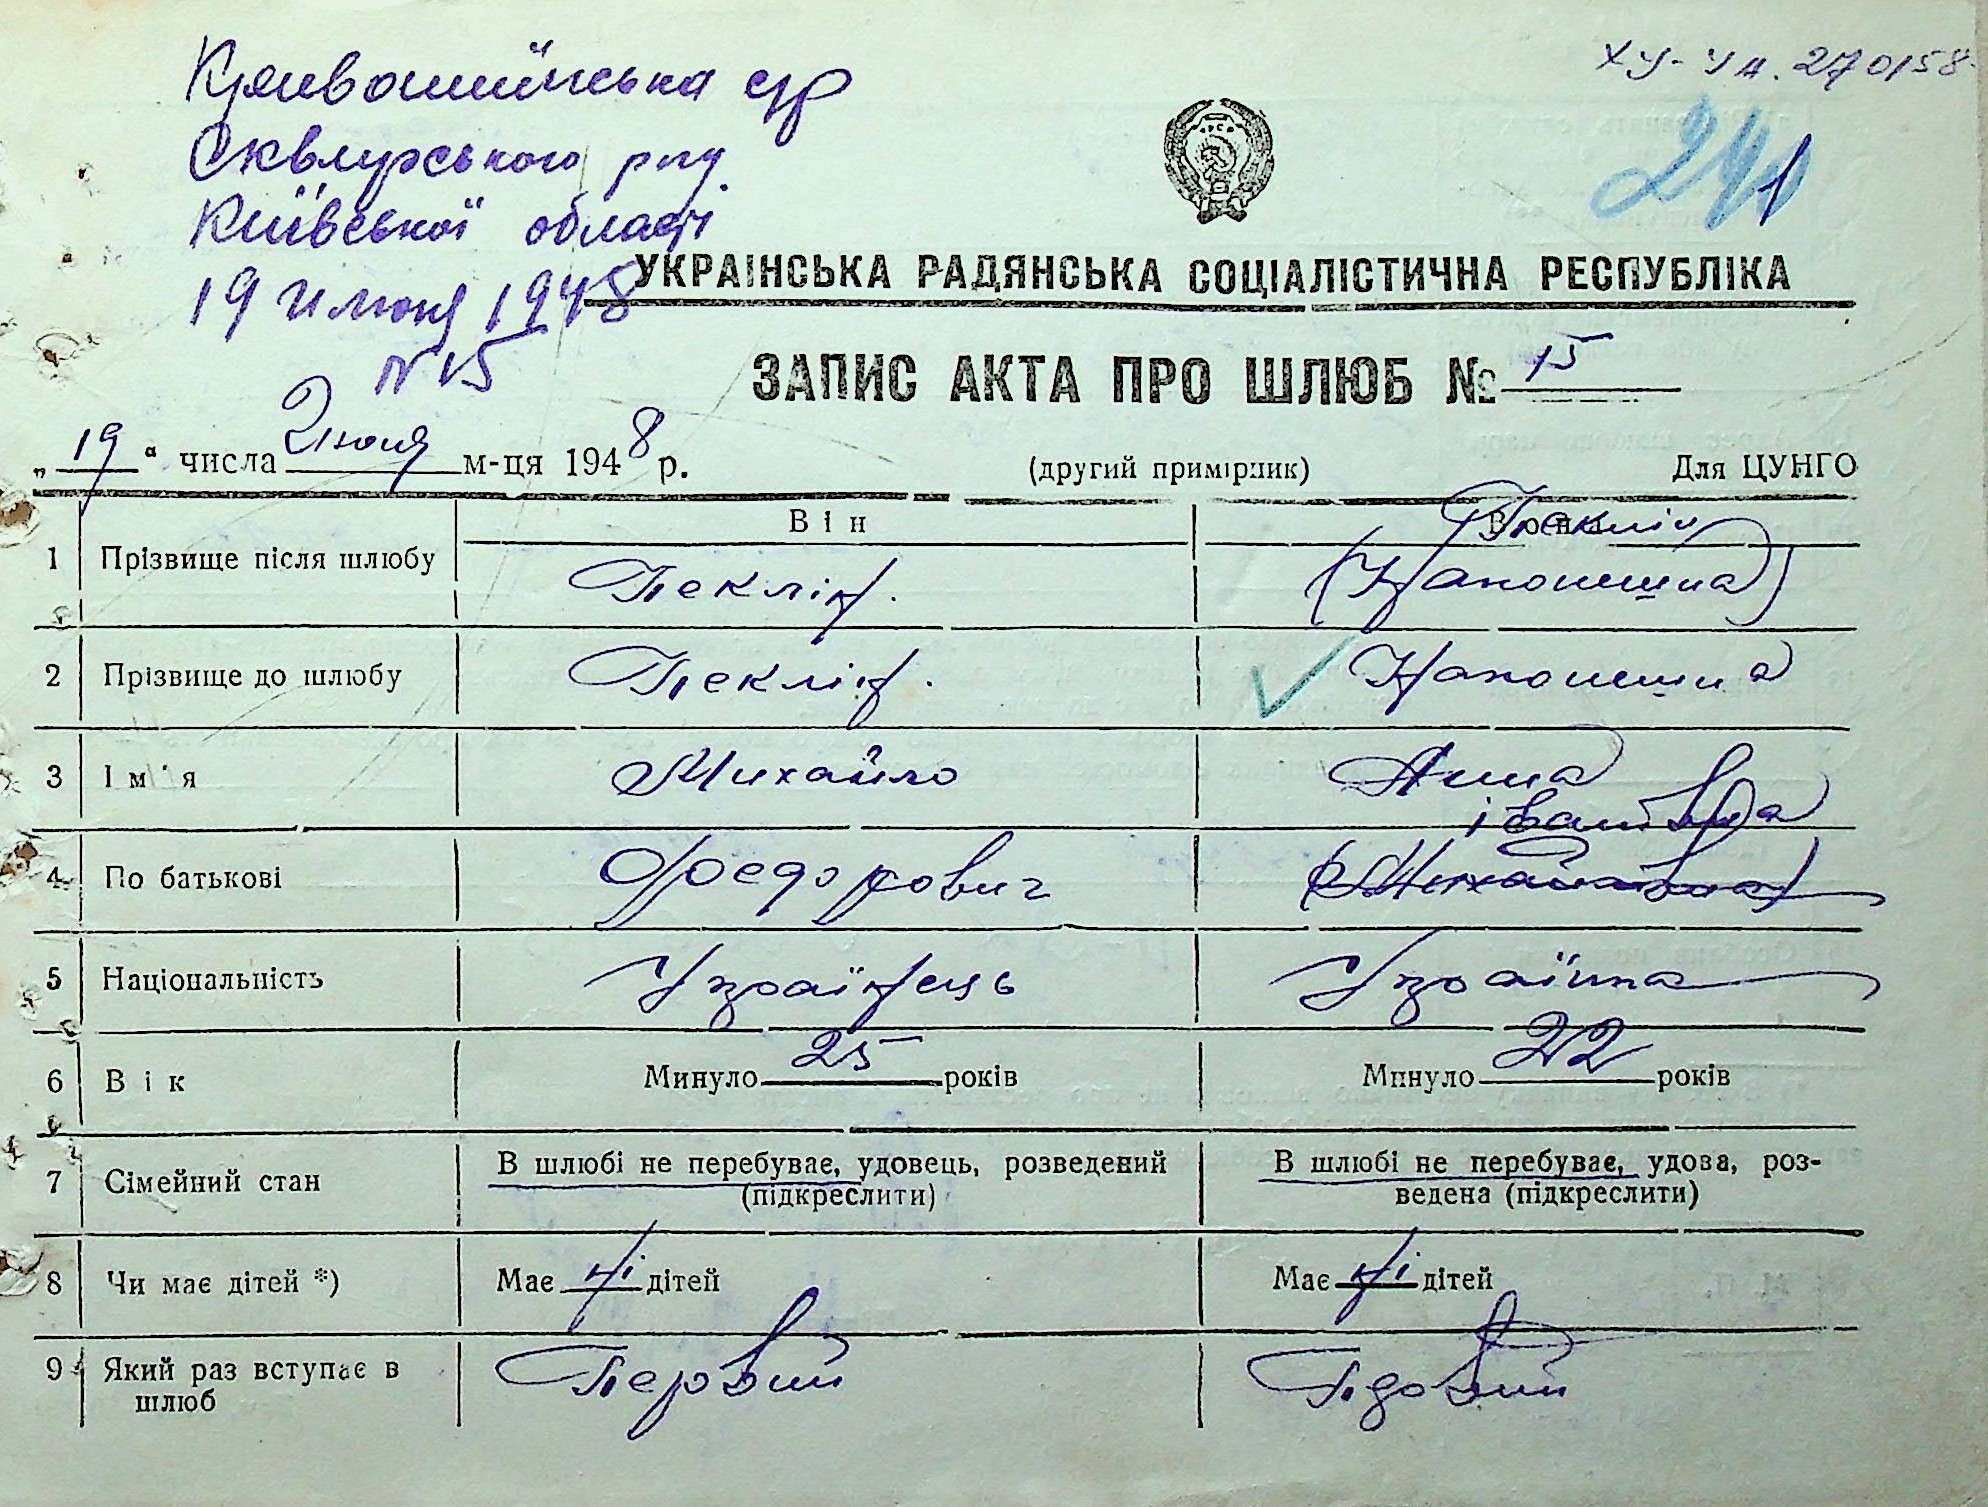 Кривошиїнська с/р
Сквирського р-ну
Київської області
19 Июня 1948
N 15
ХУ-УА. 270158
241
УКРАЇНСЬКА РАДЯНСЬКА СОЦІАЛІСТИЧНА РЕСПУБЛІКА
ЗАПИС АКТА ПРО ШЛЮБ № 15
„19“ числа Июня м-ця 1948 р. (другий примірник) Для ЦУНГО
Він Вона
Пеклін
1 Прізвище після шлюбу Пеклін. (Наконешна)
2 Прізвище до шлюбу Пеклін. Наконешна
3 Ім'я Михайло Анна
Івановна
4 По батькові Федорович (Михайловна)
5 Національність Українець Українка
6 Вік Минуло 25 років Минуло 22 років
7 Сімейний стан В шлюбі не перебуває, удовець, розведений (підкреслити) В шлюбі не перебуває, удова, роз-
ведена (підкреслити)
8 Чи має дітей *) Має ні дітей Має ні дітей
9 Який раз вступає в Первий
шлюб